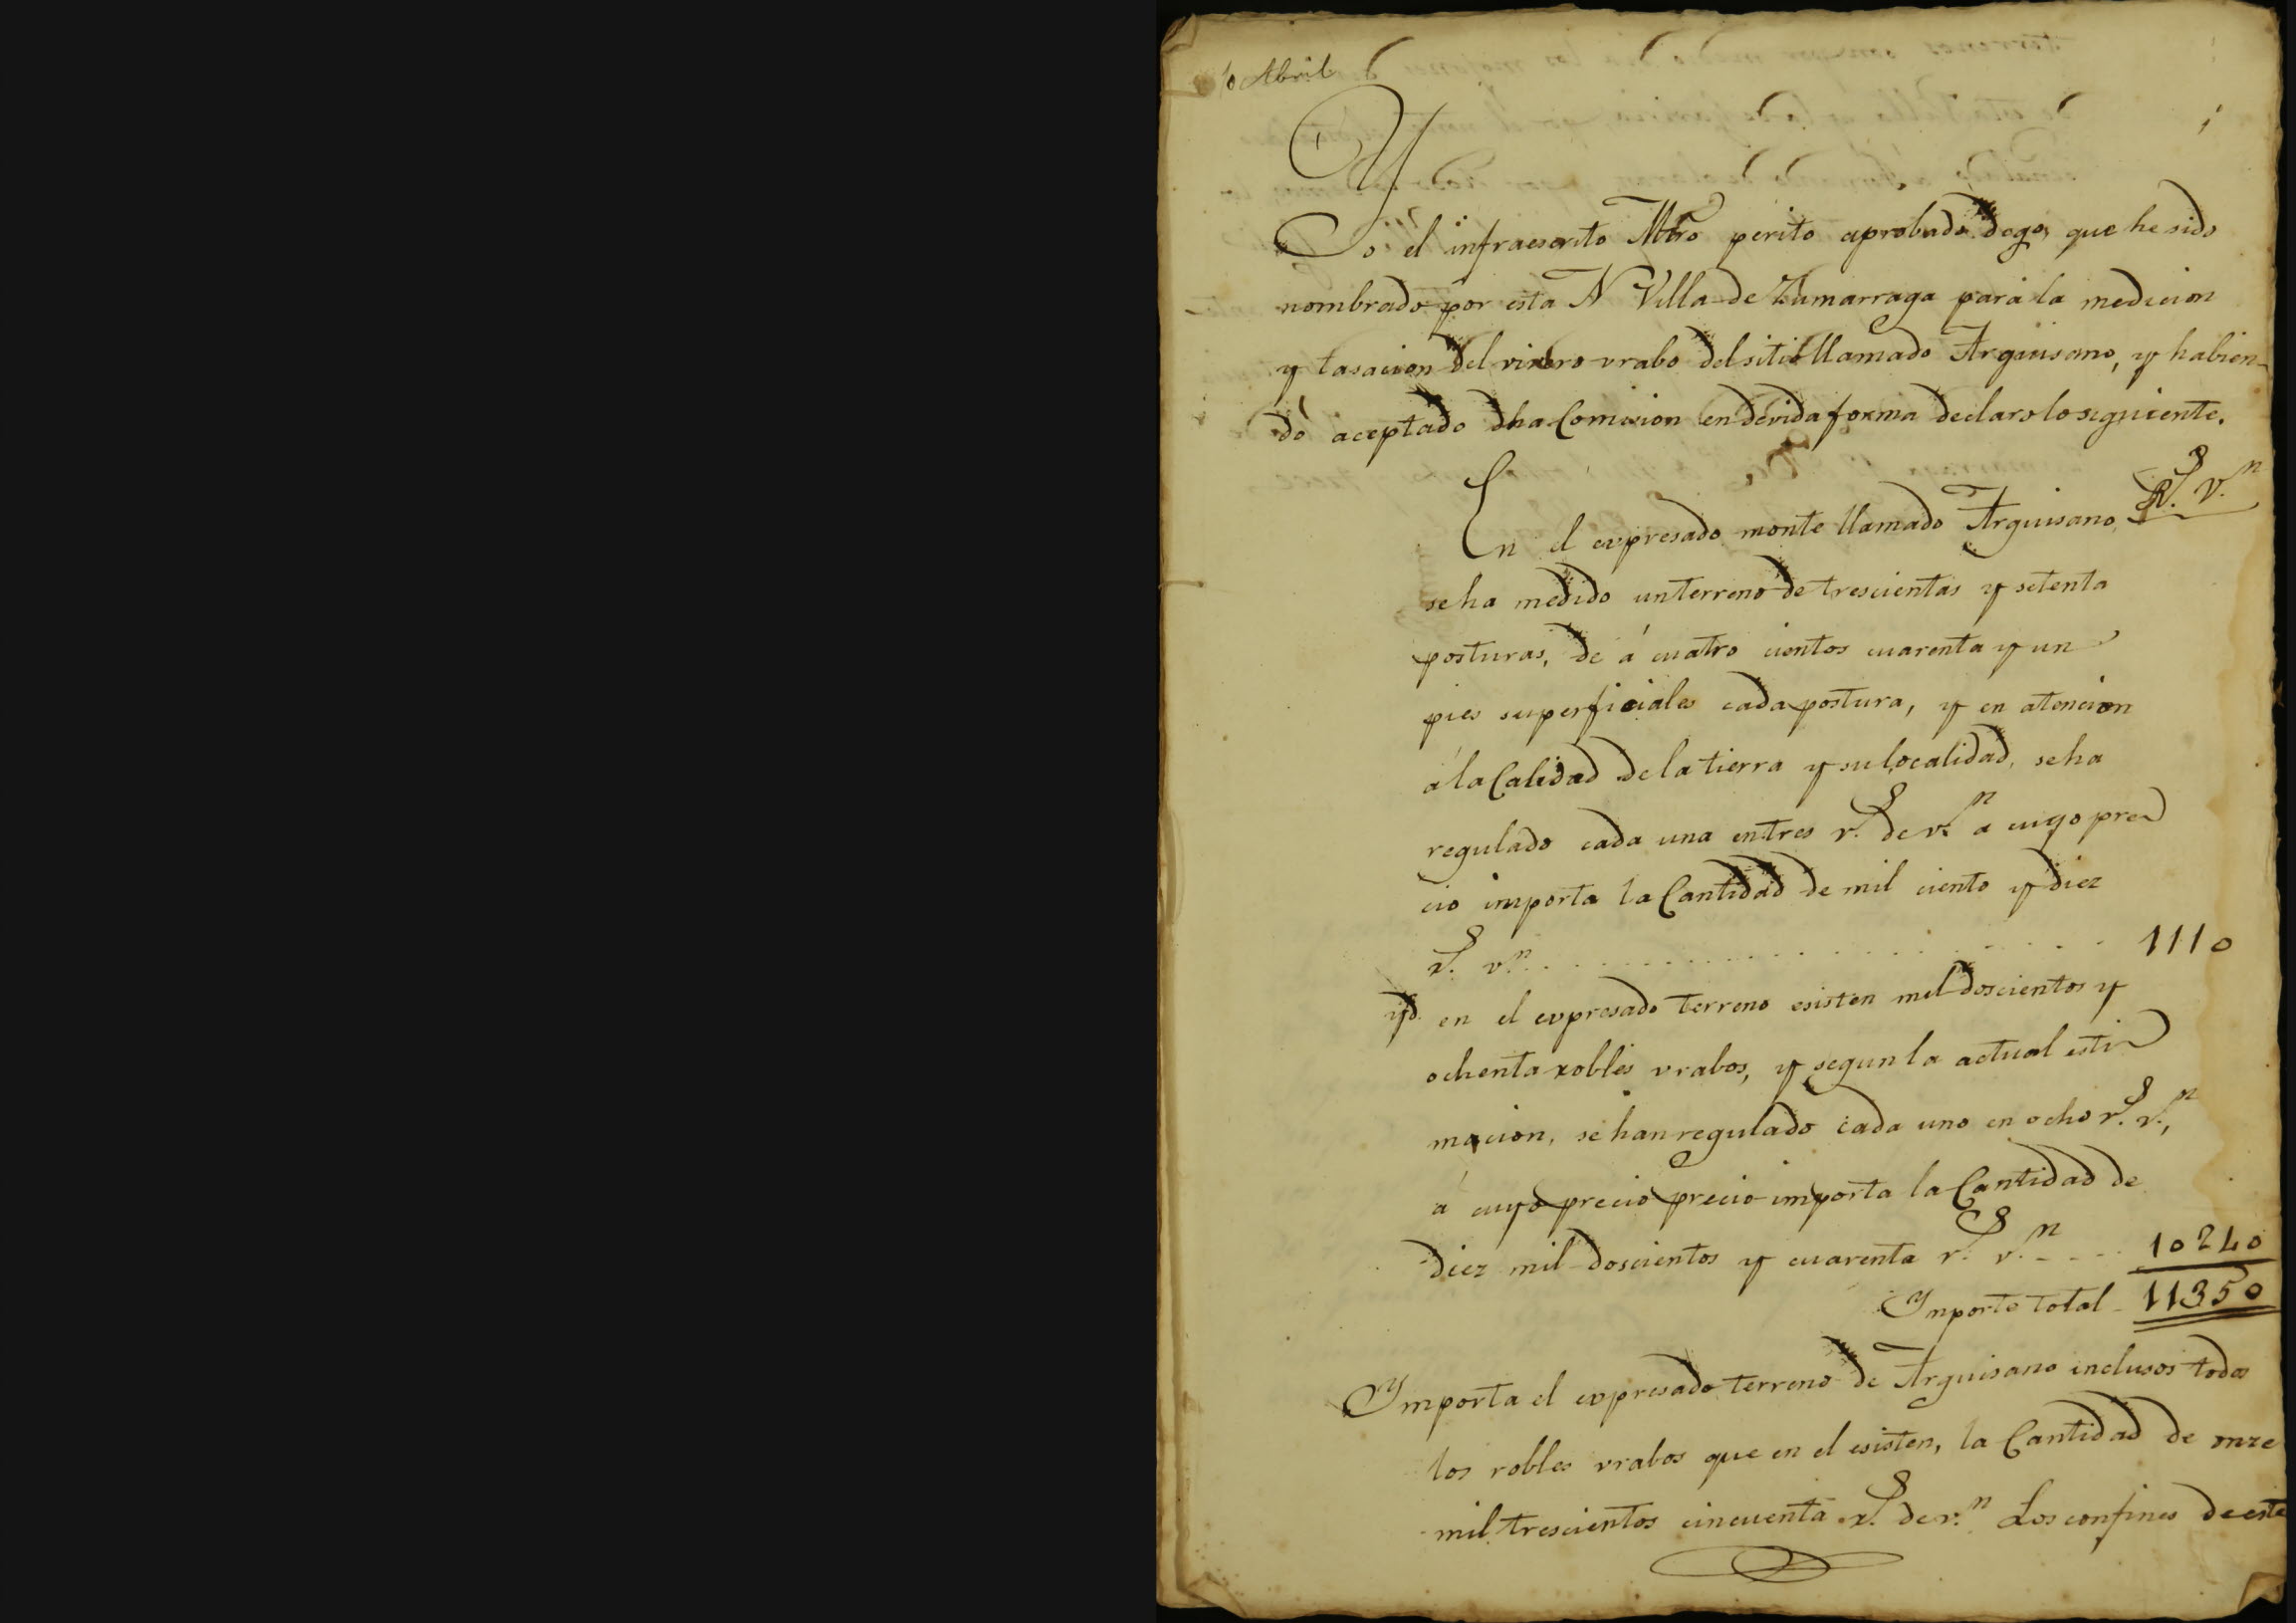 10 Abril
Yo el infraescrito Mtro perito aprobado dego, que he sido
nombrado por esta N Villa de Zumarraga para la medicion
y tasacion del vivero vrabo del sitio llamado Arguisano, y habien-
dó aceptado dha Comicion en devida forma declaro lo siguiente.
R.s V.n
En el expresado monte llamado Arguisano,
se ha medido un terreno de trescientas y setenta
posturas, de á cuatro cientos cuarenta y un
pies superficiales cada postura, y en atencion
á la Calidad de la tierra y su localidad, se ha
regulado cada una en tres r.s de v.n a cuyo pre
cio importa la Cantidad de mil ciento y diez
r.s v.n . . . . . . . . . . . . . . . . 1110
yd. en el expresado terreno esisten mil doscientos y
ochenta robles vrabos, y segun la actual esti
macion, se han regulado cada uno en ocho r.s v.n,
á cuyo precio precio importa la Cantidad de
diez mil doscientos y cuarenta r.s v.n - - - - 10240
Ymporte total - 11350
Ymporta el expresado terreno de Arguisano inclusos todos
los robles vrabos que en el esisten, la Cantidad de onze
mil trescientos cincuenta r.s de v.n Los confines de este